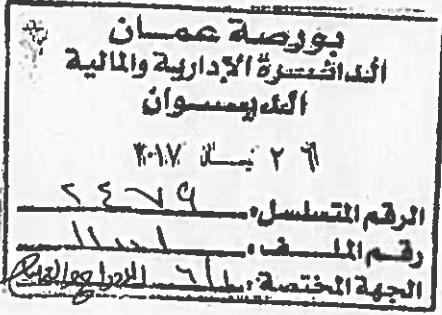 بورصة عمان
الدائرة الإدارية والمالية
الديوان
٢٦ نيسان ٢٠١٧
الرقم المتسلسل: ٢٤٧٩
رقم الملف:
الجهة المختصة: